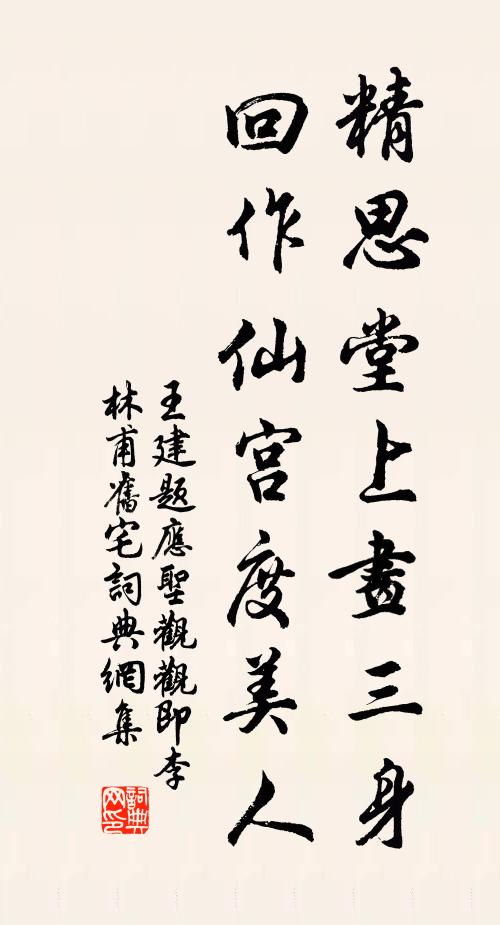 精思堂上畫三身
回作仙宮度美人
王建題應聖觀觀即李
林甫舊宅詞典網集
詞典网印